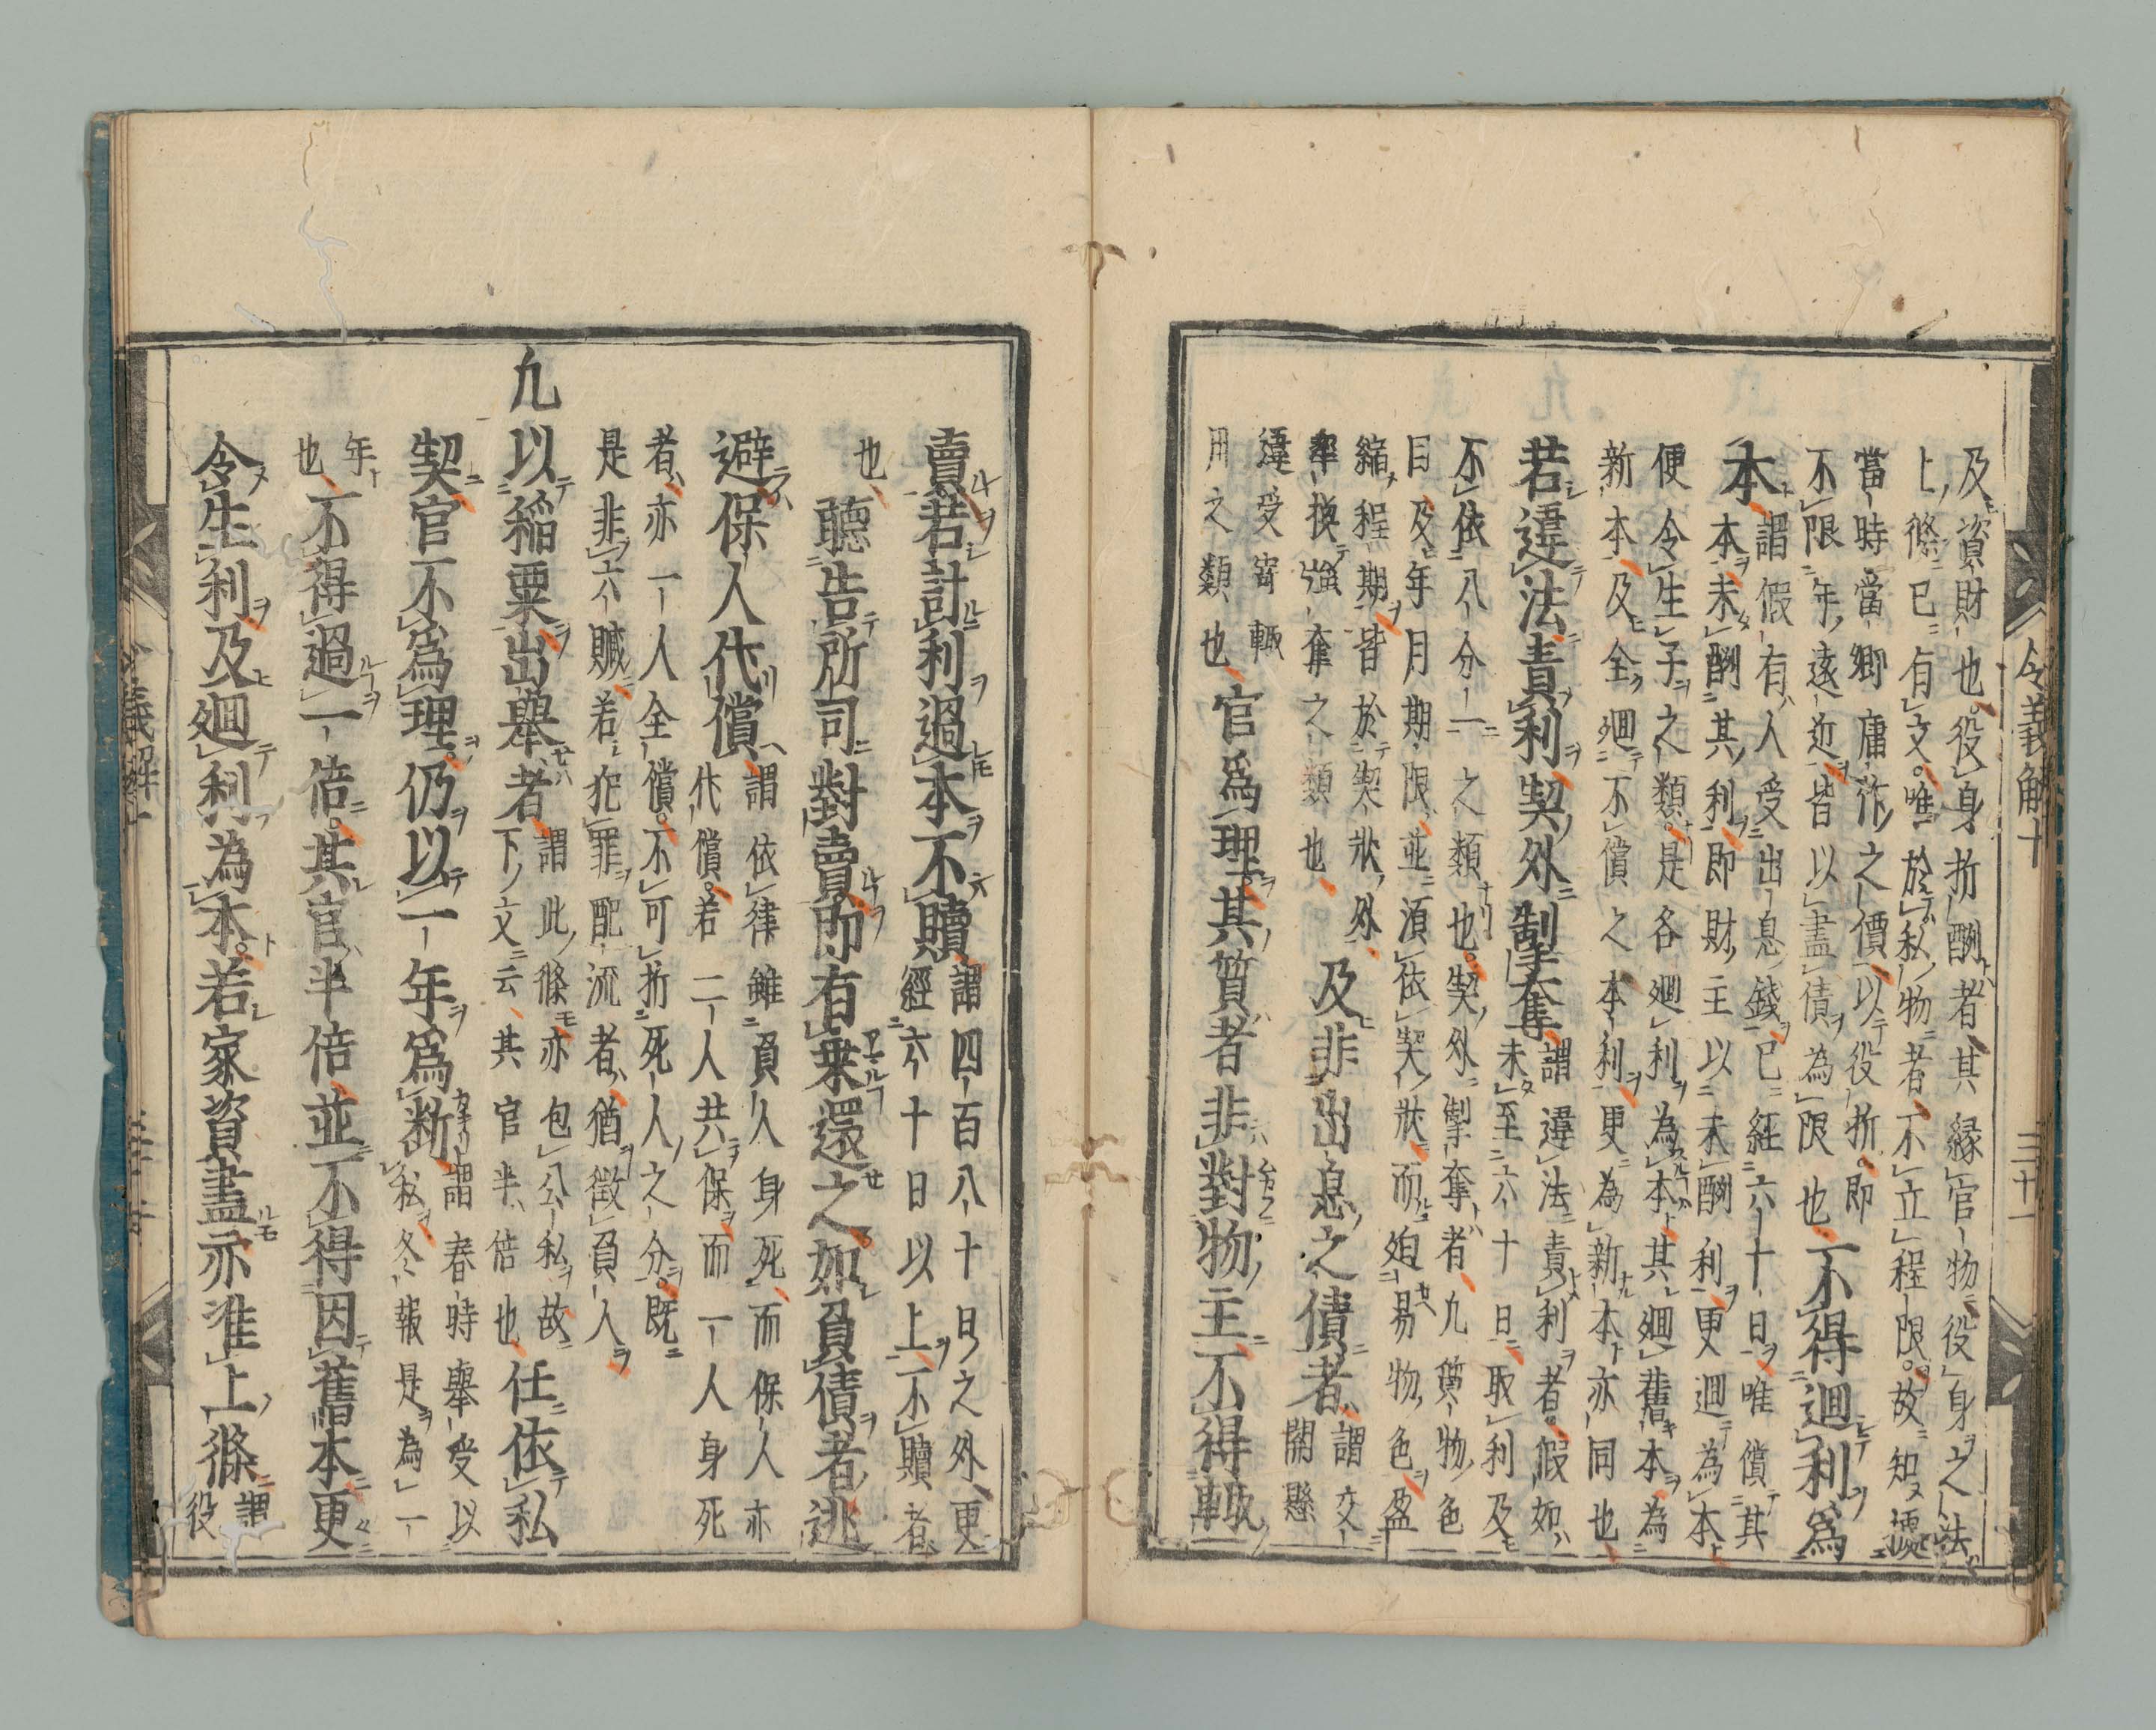 令義解十　三十一
及資財也。役身折酬者其縁官物役身之法
上條已有文。唯於私物者不立程限。故知須
當時當郷庸作之價以役折。即
不限年遠近皆以盡債為限也
不得廻利爲
本
謂假有人受出息錢已經六十日唯償其
本未酬其利即財主以未酬利更廻為本
便令生子之類。是各廻利為本其廻舊本為
新本及全廻不償之本利更為新本亦同也
若違法責利契外掣奪
謂違法責利者。假如
未至六十日取利及
不依八分一之類也。契外掣奪者九質物色
日及年月期限並須依契狀而廹易物色盈
縮程期皆於契狀外
牽換強奪之類也
及非出息之債者
謂交
關懸
違受寄輙
用之類也
官爲理。其質者非對物主不得輙
賣若計利過本不贖
謂四百八十日之外更
經六十日以上不贖者
也
聽告所司對賣即有乗還之如負債者逃
避保人代償
謂依律雖負人身死而保人亦
代償。若二人共保而一人身死
者亦一人全償。不可折死人之分。既
是非六贓若犯罪配流者猶徴負人
九
以稲粟出舉者
謂此條亦包公私故
下文云其官半倍也
任依私
契官不爲理。仍以一年爲断
謂春時舉受以
私冬報是為一
年
也
不得過一倍。其官半倍並不得因舊本更
令生利及廻利為本。若家資盡亦准上條
謂
役